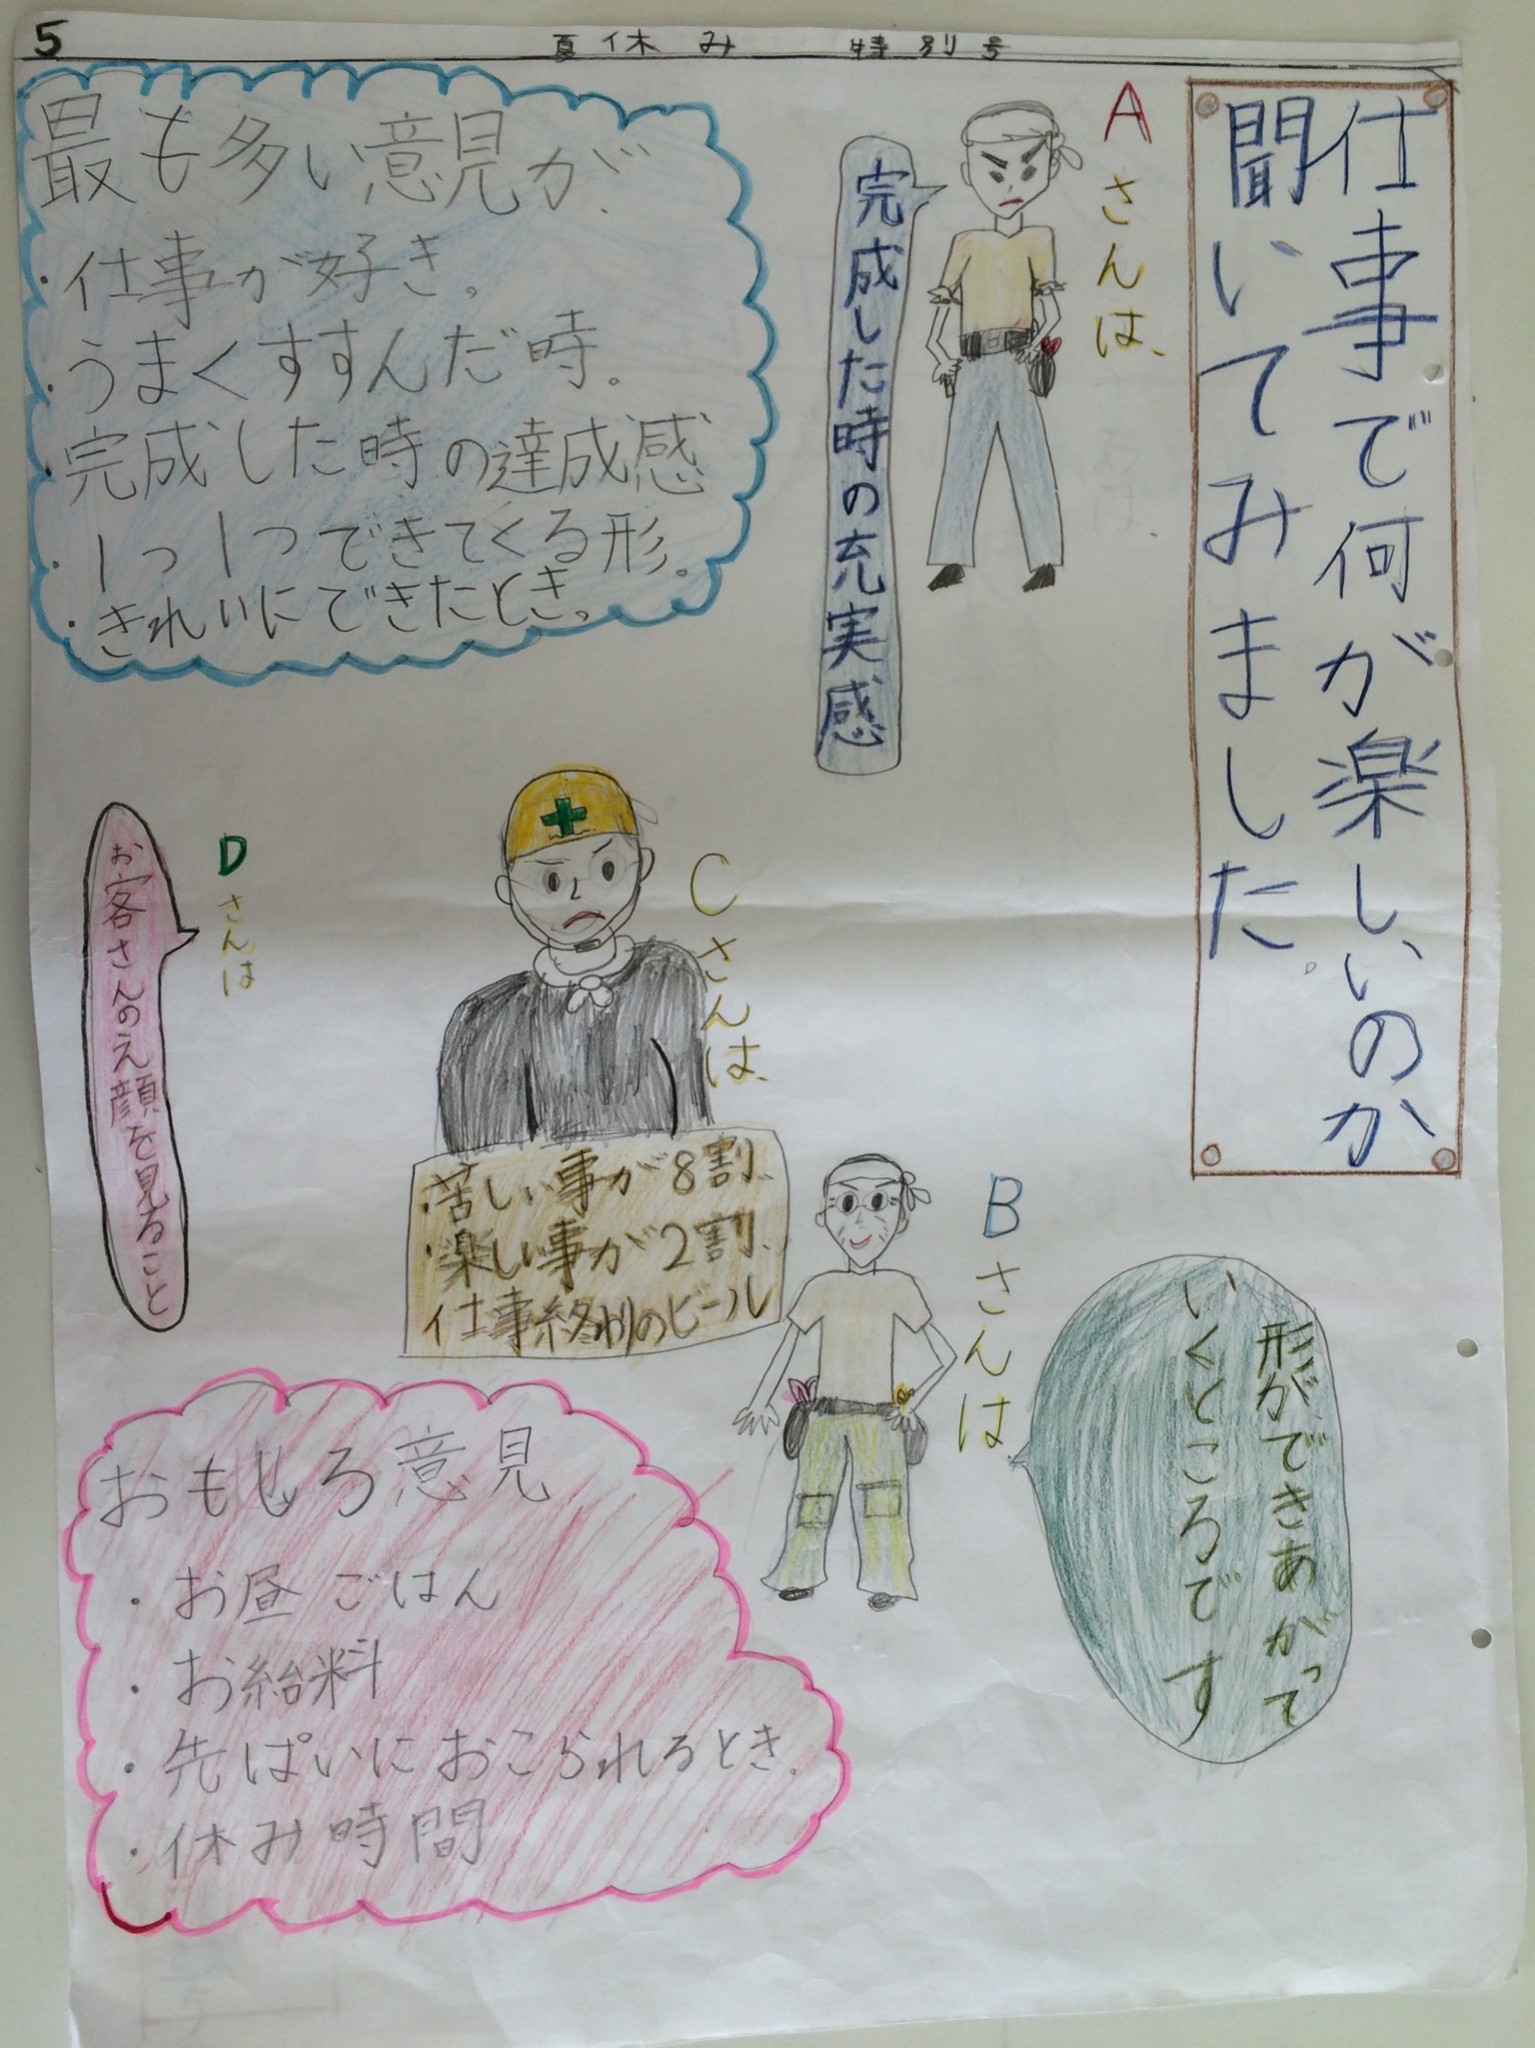 5
夏休み 特別号
仕事で何が楽しいのか
聞いてみました。
Aさんは、
完成した時の充実感
最も多い意見が、
・仕事が好き。
・うまくすすんだ時。
・完成した時の達成感
・1つ1つできてくる形。
・きれいにできたとき。
Bさんは、
形ができあがって
いくところです
Cさんは、
・苦しい事が8割、
・楽しい事が2割、
仕事終わりのビール
Dさんは
お客さんのえ顔を見ること
おもしろ意見
・お昼ごはん
・お給料
・先ぱいにおこられるとき。
・休み時間